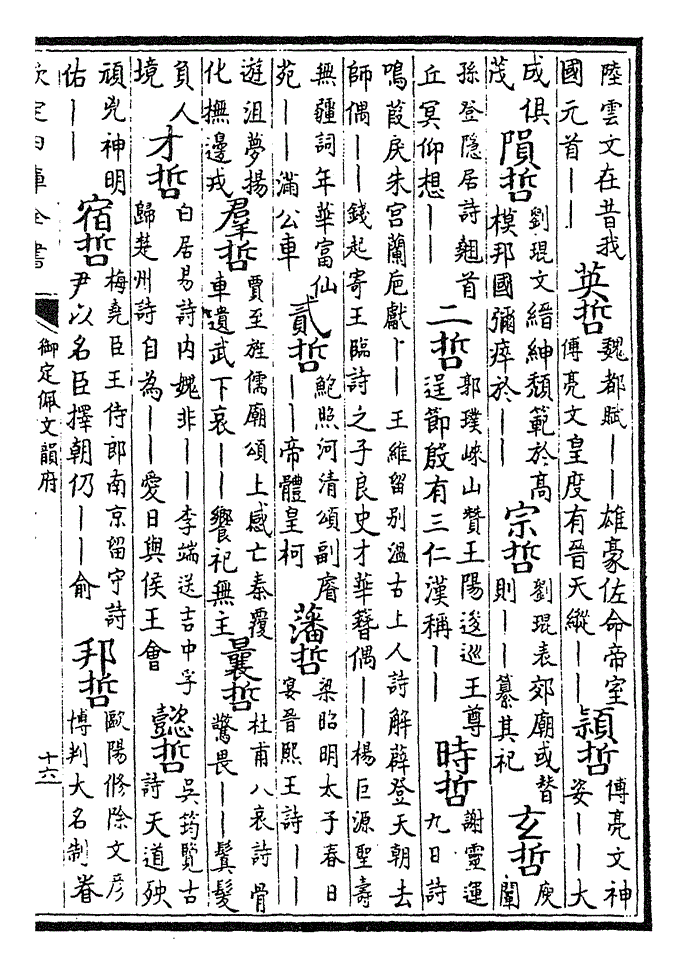 陸雲文在昔我
國元首｜｜
英哲
魏都賦｜｜雄豪佐命帝室
傅亮文皇度有晉天縱｜｜
穎哲
傅亮文神
姿｜｜大
成俱
茂
隕哲
劉琨文縉紳頹範於髙
模邦國彌瘁於｜｜
宗哲
劉琨表郊廟或替
則｜｜纂其祀
玄哲
庾
闡
孫登隱居詩翹首
丘冥仰想｜｜
二哲
郭璞崍山贊王陽逡巡王尊
逞節殷有三仁漢稱｜｜
時哲
謝靈運
九日詩
鳴葭戾朱宮蘭巵獻｜｜王維留别溫古上人詩解薜登天朝去
師偶｜｜錢起寄王臨詩之子良史才華簪偶｜｜楊巨源聖壽
無疆詞年華富仙
苑｜｜滿公車
貳哲
鮑照河清頌副睿
｜｜帝體皇柯
藩哲
梁昭明太子春日
宴晉熙王詩｜｜
遊沮夢揚
化撫邊戎
羣哲
賈至旌儒廟頌上感亡秦覆
車遺武下哀｜｜饗祀無主
曩哲
杜甫八哀詩骨
驚畏｜｜鬢髮
負人
境
才哲
白居易詩内媿非｜｜李端送吉中孚
歸楚州詩自為｜｜愛日與侯王會
懿哲
吳筠覽古
詩天道殃
頑兇神明
佑｜｜
宿哲
梅堯臣王侍郎南京留守詩
尹以名臣擇朝仍｜｜俞
邦哲
歐陽修除文彦
博判大名制眷
欽定四庫全書
御定佩文韻府
十六